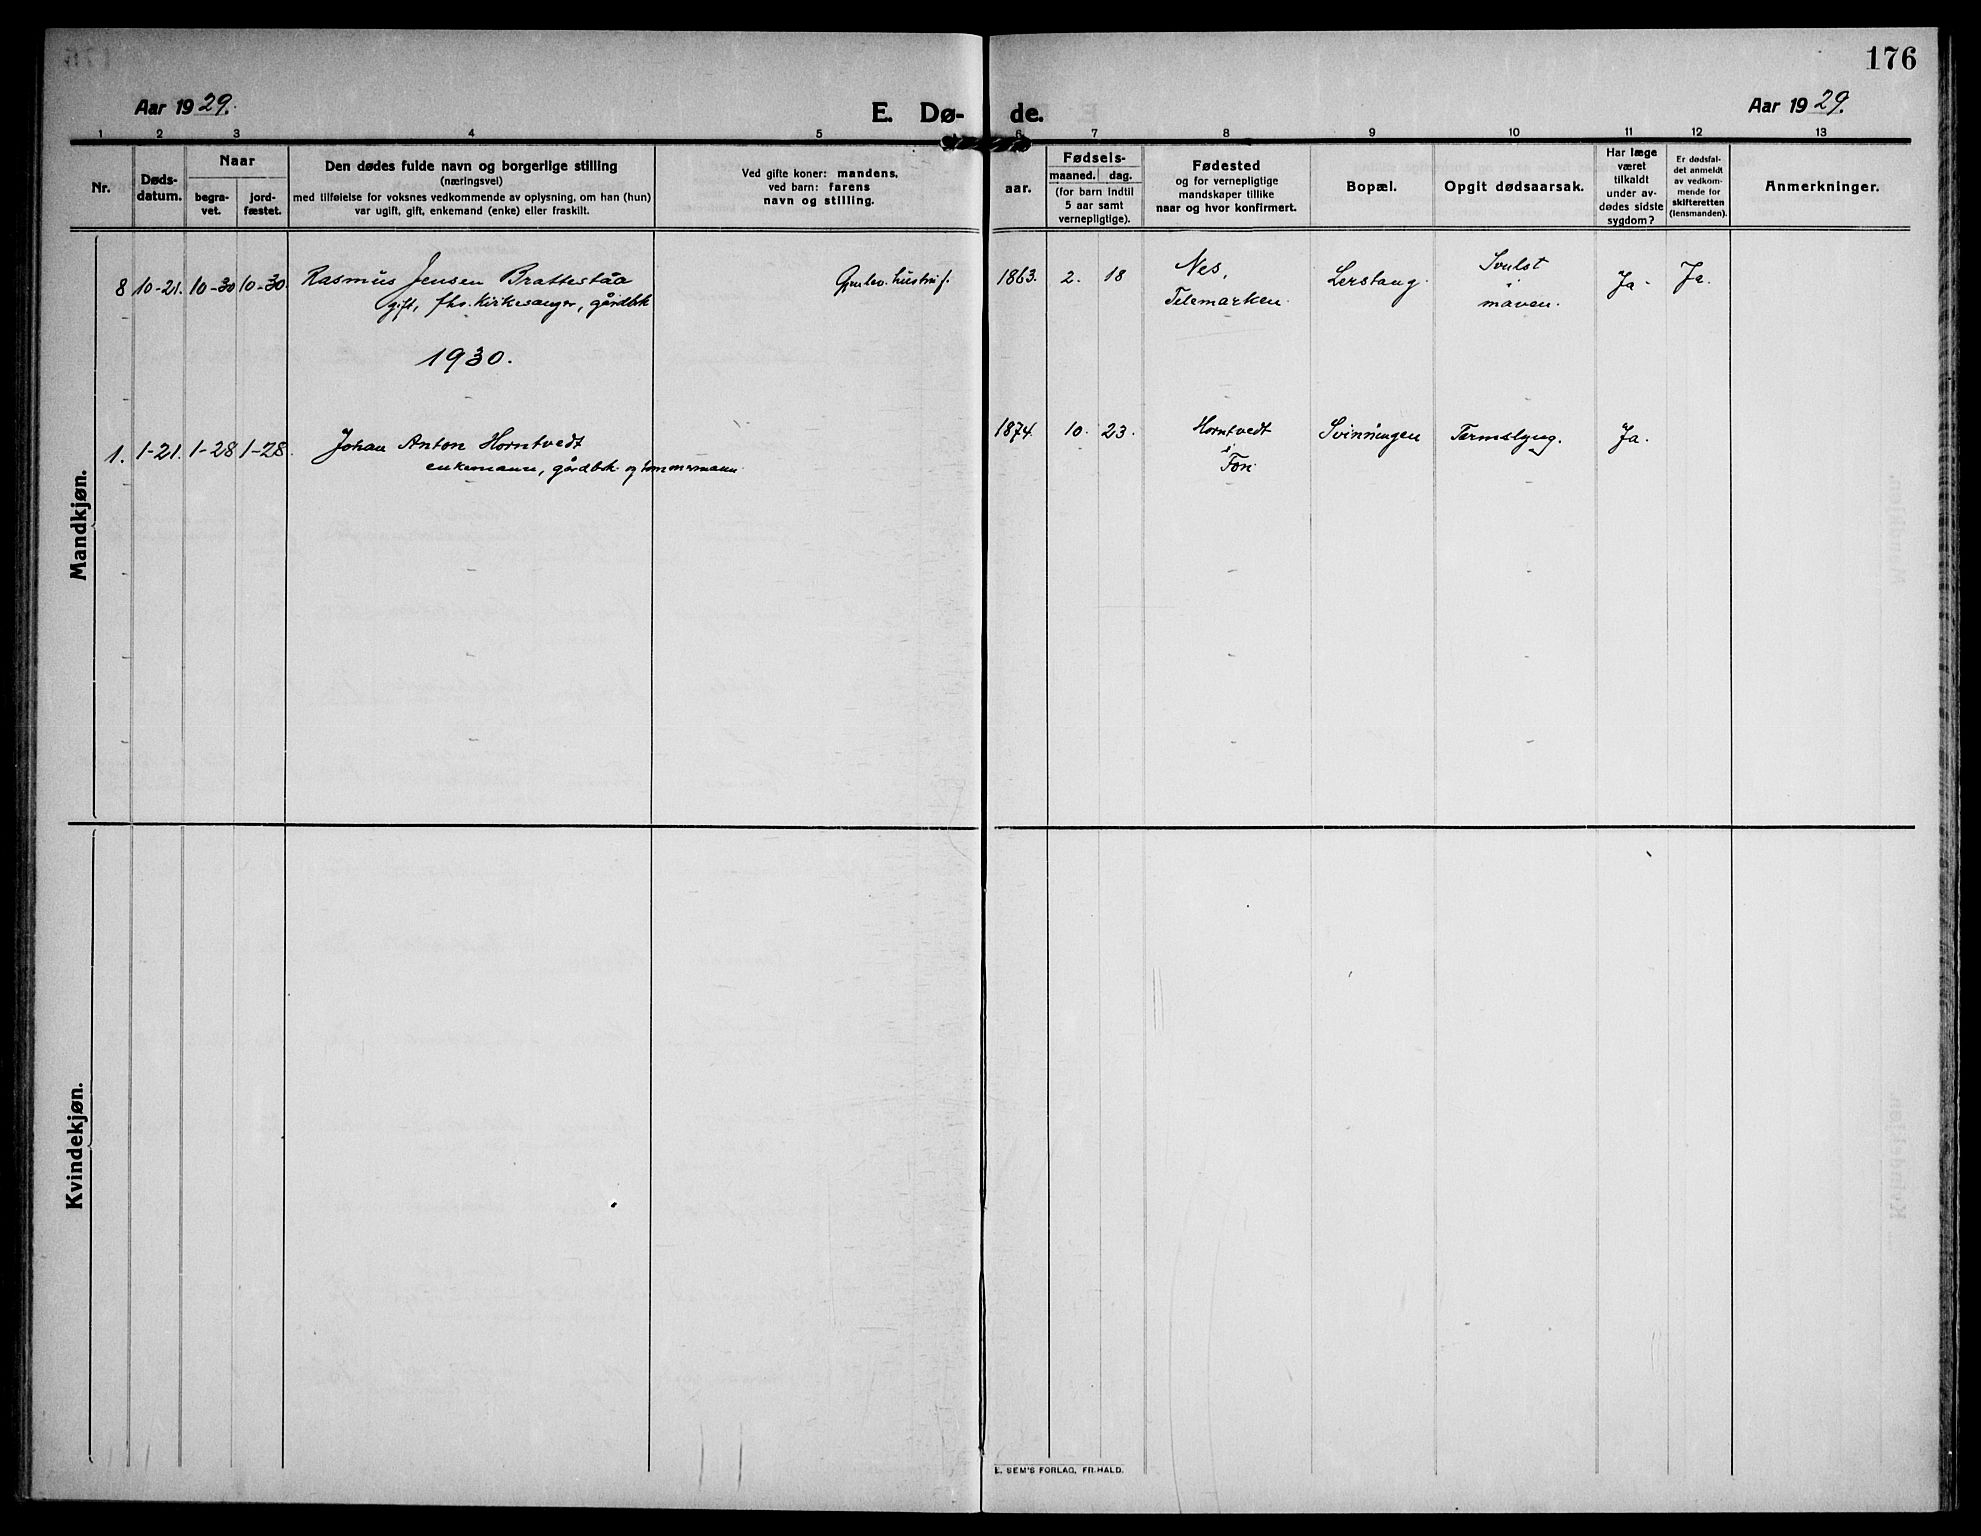 176
Aar 1929.
E. Dø-
de.
Aar 1929.
1 2 3 4 5 6 7 8 9 10 11 12 13
Nr.
Døds-
datum.
Naar
begra-
vet.
jord-
fæstet.
Den dødes fulde navn og borgerlige stilling
(næringsvei)
med tilføielse for voksnes vedkommende av oplysning, om han (hun)
var ugift, gift, enkemand (enke) eller fraskilt.
Ved gifte koner: mandens,
ved barn: farens
navn og stilling.
Fødsels-
aar.
maaned. dag.
(for barn indtil
5 aar samt
vernepligtige).
Fødested
og for vernepligtige
mandskaper tillike
naar og hvor konfirmert.
Bopæl.
Opgit dødsaarsak.
Har læge
været
tilkaldt
under av-
dødes sidste
sygdom?
Er dødsfal-
det anmeldt
av vedkom-
mende for
skifteretten
(lensmanden).
Anmerkninger.
Mandkjøn.
8 10-21. 10-30 10-30. Rasmus Jensen Brattestaa
gift, fhv. kirkesanger, gårdbk
1863. 2. 18
Nes,
Telemarken.
Lerstang.
Svulst
i
maven.
Ja.
Ja.
1930.
1. 1-21. 1-28 1-28. Johan Anton Horntvedt
enkemann, gårdbk. og tømmermann
1874. 10. 23.
Horntvedt
i
Fon.
Svinningen
Tarmslyng.
Ja.
Kvindekjøn.
E. SEM'S FORLAG, FR.HALD.